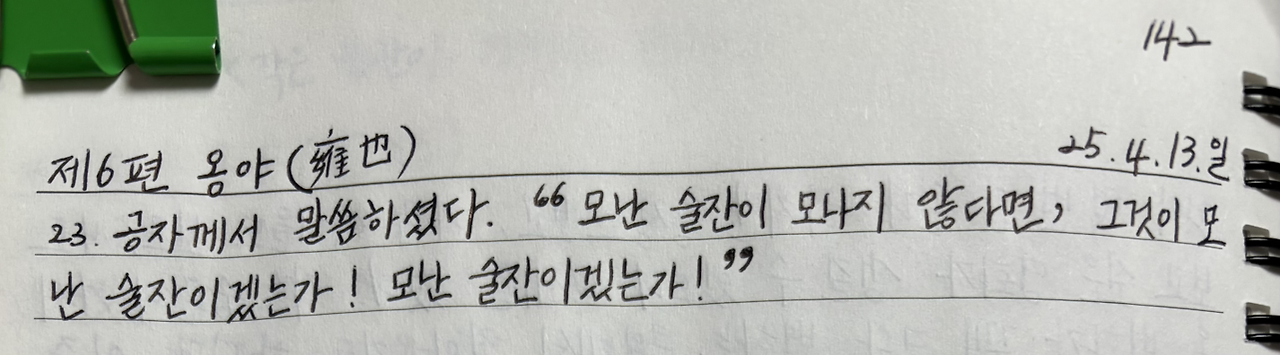 142
제6편 옹야(雍也)
25.4.13.일
23. 공자께서 말씀하셨다. “모난 술잔이 모나지 않다면, 그것이 모
난 술잔이겠는가! 모난 술잔이겠는가!”